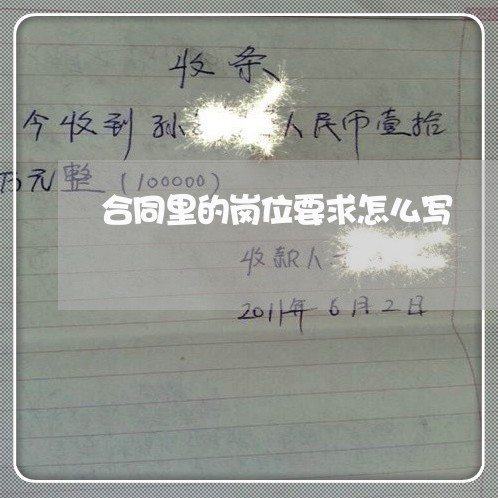 收条
今收到孙 人民币壹拾
万元整(100000)
合同里的岗位要求怎么写
收款人
2011年6月2日